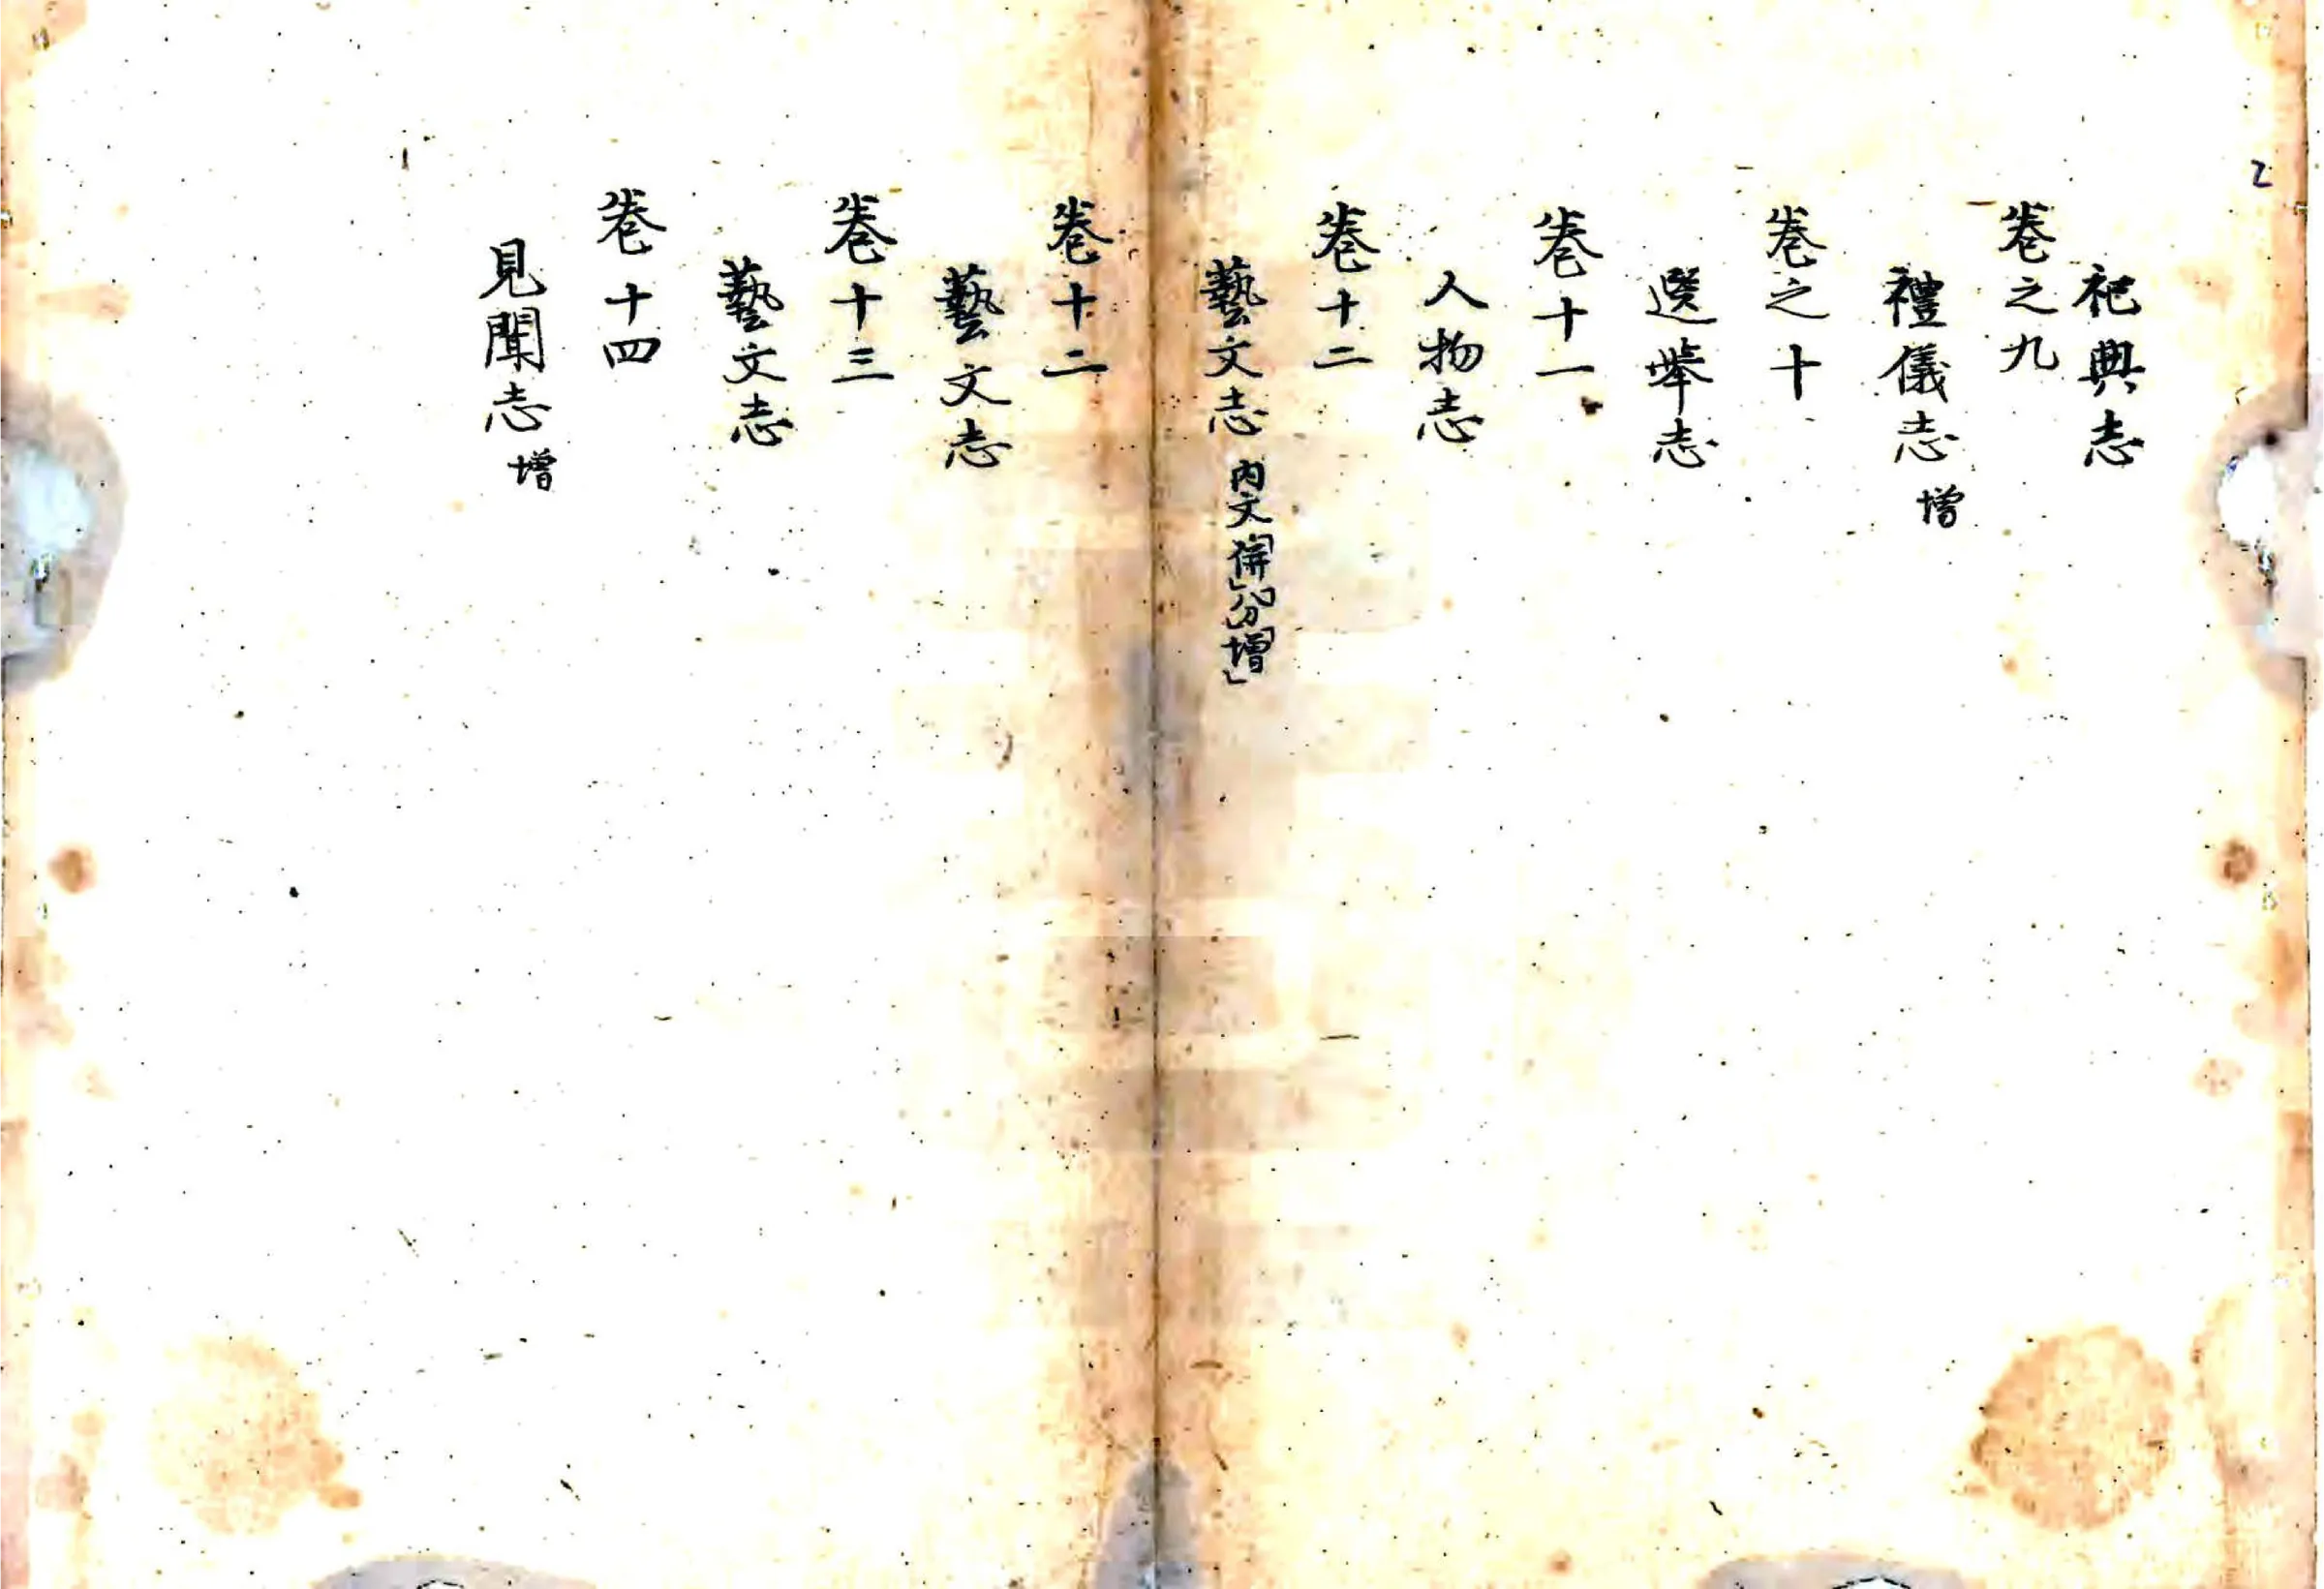 2
祀典志
卷之九
禮儀志 增
卷之十
選舉志
卷十一
人物志
卷十二
藝文志 內文「併」「分」「增」
卷十二
藝文志
卷十三
藝文志
卷十四
見聞志 增